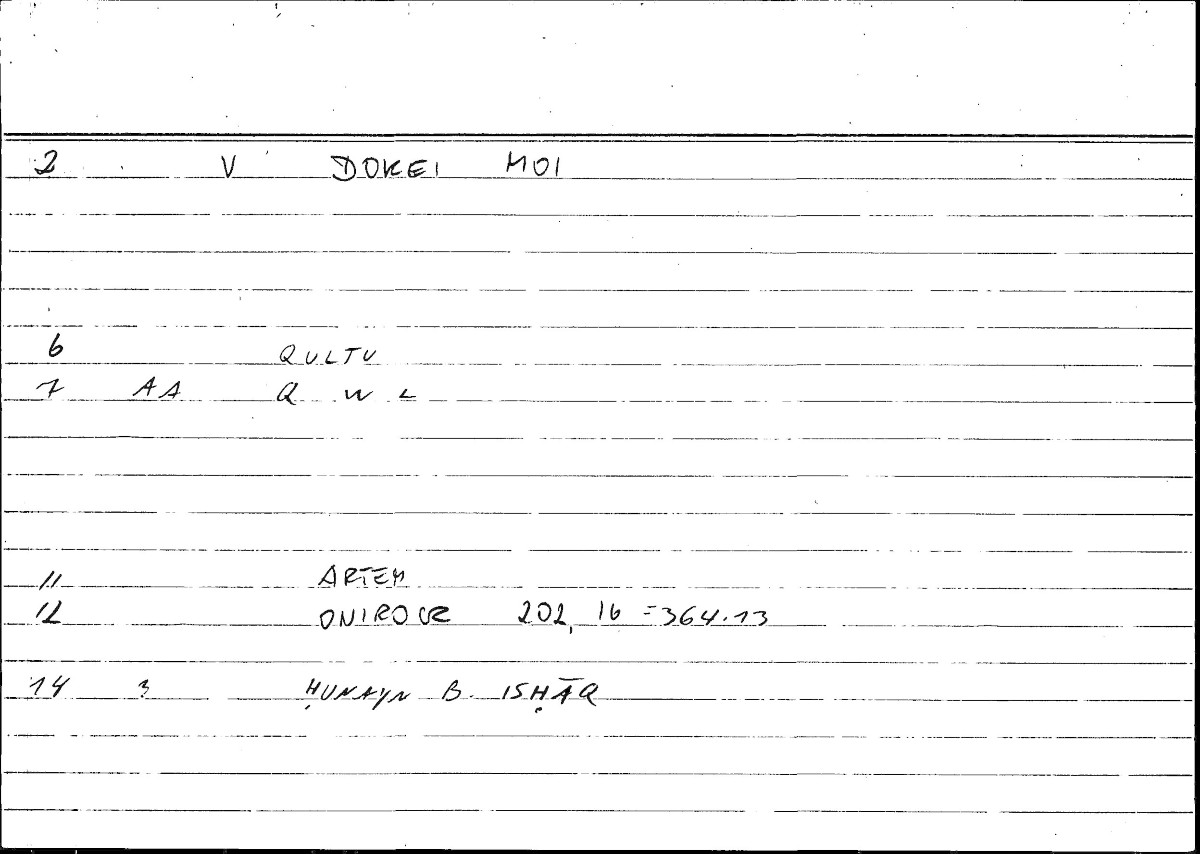 2 V DOKEI MOI
6 QULTU
7 AA Q W L
11 ARTEM
12 ONIROCR 202, 16 = 364.13
14 3 ḤUNAYN B. ISḤĀQ